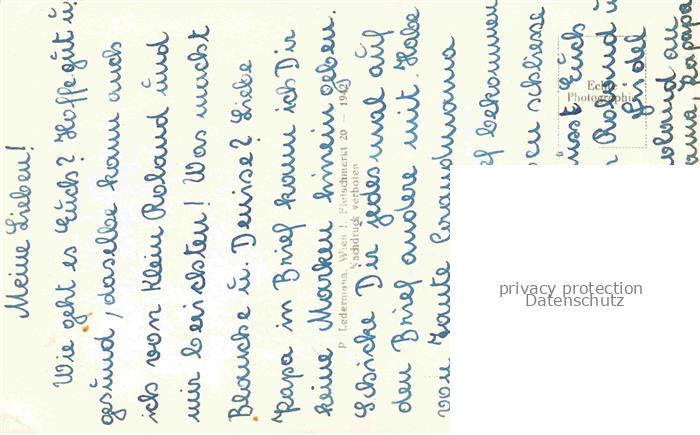 Meine Lieben!
Wie geht es Euch? Hoffe gut u.
gesund, dasselbe kann auch
ich von Klein Roland und
mir berichten! Was macht
Blanche u. Denise? Liebe
Papa in Brief kann ich Dir
keine Marken hinein geben.
Schicke Dir jedesmal auf
den Brief andere mit. Habe
von Tante
bekommen
schliesse
Euch
Roland u.
Fidel
Roland an
Papa
P. Ledermann, Wien I., Fleischmarkt 20 — 1942
Nachdruck verboten
Echte
Photographie
privacy protection
Datenschutz